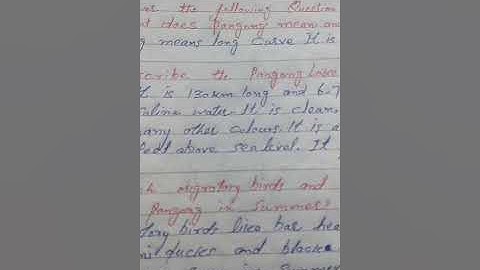 the following Question
does Pangong mean an
means long curve It is
cribe the Pangong
t is 130 km long and 6-7
saline water. It is clean
any other colours. It is a
feet above sea level. It
migratory birds and
Pangong in summer?
tory birds like bar hea
ni ducks and black